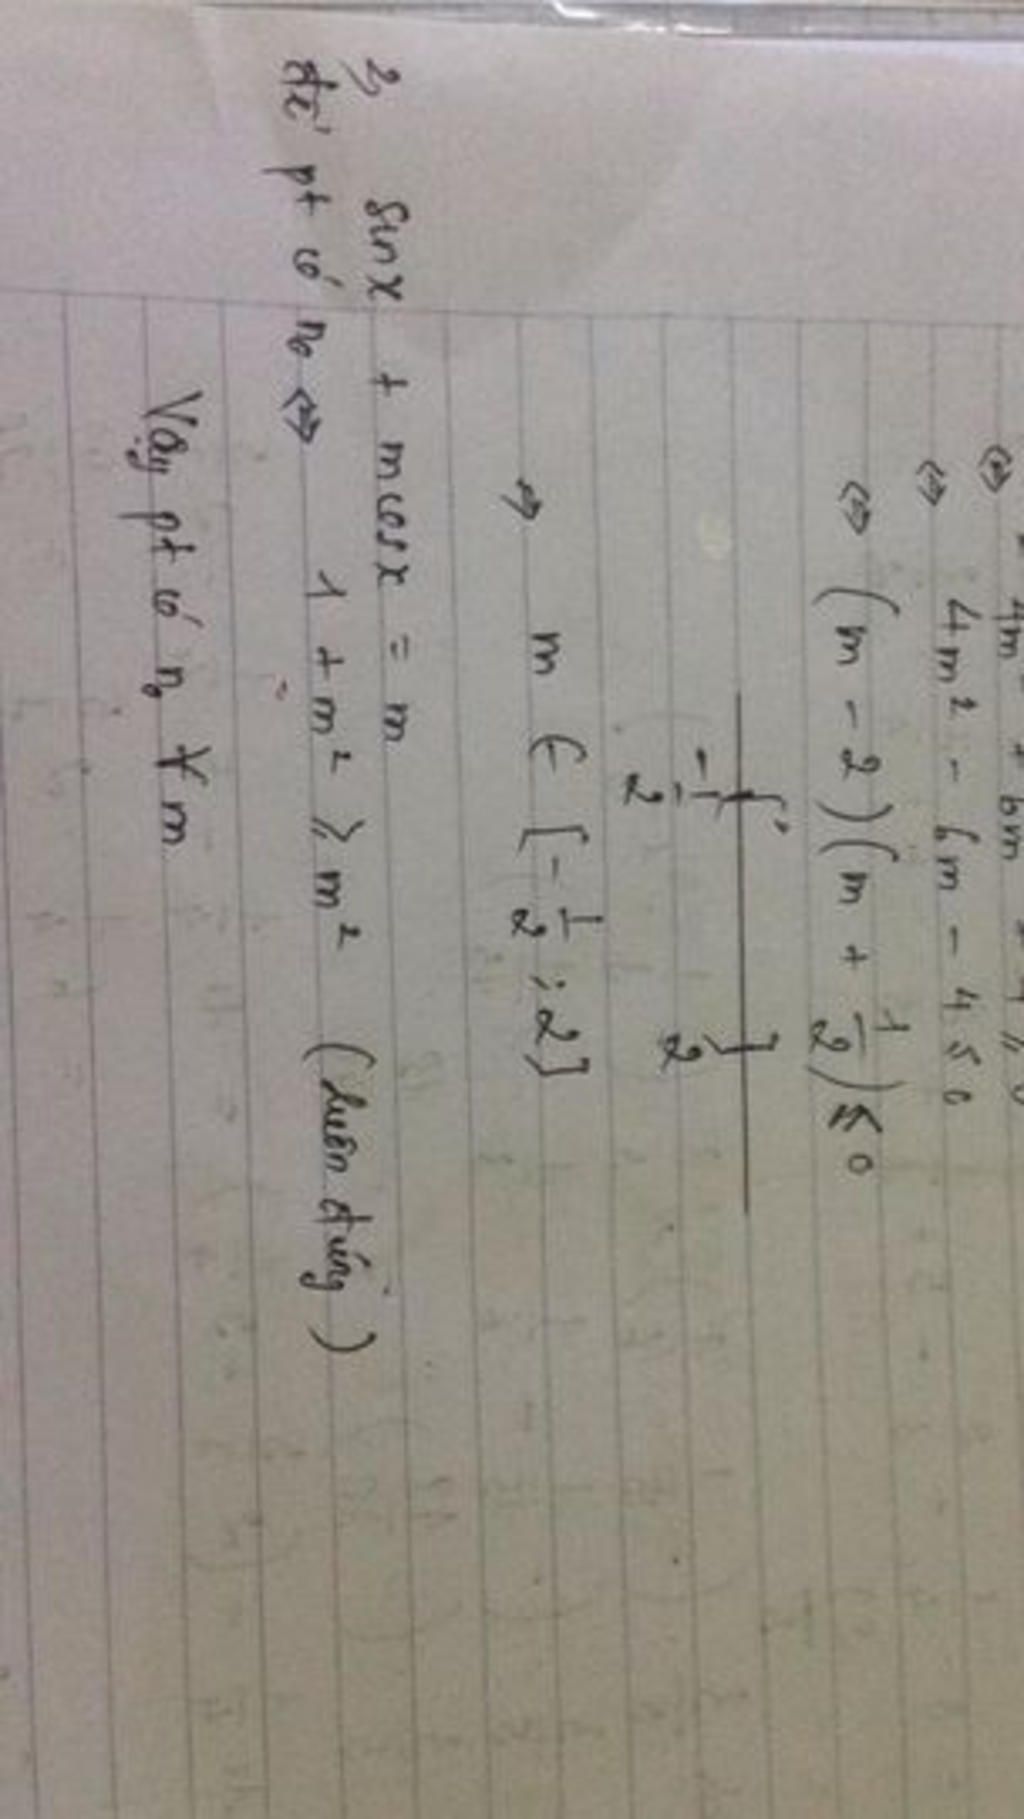 ⇔ 4m² - 6m - 4 ≤ 0
⇔ (m - 2)(m + 1/2) ≤ 0
-1/2 2
⇒ m ∈ [-1/2 ; 2]
2, sinx + mcosx = m
để pt có n₀ ⇔ 1 + m² ≥ m² (luôn đúng)
Vậy pt có n₀ ∀m